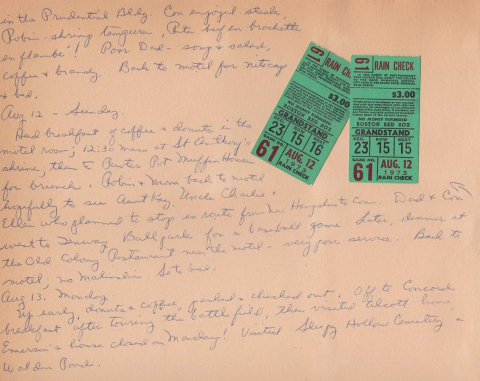 in the Prudential Bldg. Con enjoyed steak
Robin - shrimp Pita beef en brochette
en flambe! Poor Dad - soup & salad,
coffee & brandy Back to motel for nitecap
& bed.
Aug 12 - Sunday.
Had breakfast of coffee & donuts in the
motel room; 12:30 mass at St Anthony's
shrine, then to Pewter Pot Muffin House
for brunch. Robin & Mom back to motel
hopefully to see Aunt Kay, Uncle Charlie &
Ellen who planned to stop en route from New Hampshire to Conn. Dad & Con
went to Fenway Ball park for a baseball game. Later, dinner at
the Old Colony Restaurant near the motel - very poor service. Back to
motel, no So to bed.
Aug 13. Monday
Up early, donuts & coffee, packed & checked out. Off to Concord
breakfast after touring the battlefield, then visited Alcott house,
Emerson's house closed on Monday! Visited Sleepy Hollow Cemetery &
Walden Pond.
61
RAIN CHECK
$3.00
NO MONEY REFUNDED
BOSTON RED SOX
GRANDSTAND
SEC. ROW SEAT
23 15 16
GAME NO.
61 AUG. 12
1973
RAIN CHECK
61
RAIN CHECK
$3.00
NO MONEY REFUNDED
BOSTON RED SOX
GRANDSTAND
SEC. ROW SEAT
23 15 15
GAME NO.
61 AUG. 12
1973
RAIN CHECK